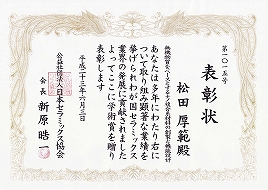 第一〇一五号
表彰状
松田 厚範殿
無機物質をベースとするナノ複合素材料の創製と機能設計
あなたは多年にわたり右に
ついて取り組み顕著な業績を
挙げられわが国セラミックス
業界の発展に貢献されました
よってここに学術賞を贈り
表彰します
平成二十三年六月三日
公益社団法人日本セラミックス協会
会長 新原 晧一